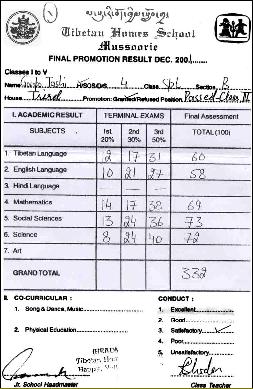 Tibetan Homes School
Mussoorie
FINAL PROMOTION RESULT DEC. 200
Classes I to V
Tashi SOS/D/S 4 Class Section B
House Promotion: Granted/Refused Position Passed Class IV
I. ACADEMIC RESULT TERMINAL EXAMS Final Assessment
SUBJECTS 1st 20% 2nd 30% 3rd 50% TOTAL (100)
1. Tibetan Language 12 17 31 60
2. English Language 10 21 27 58
3. Hindi Language
4. Mathematics 14 17 38 69
5. Social Sciences 13 24 36 73
6. Science 8 24 40 72
7. Art
GRAND TOTAL 332
II. CO-CURRICULAR : CONDUCT :
1. Song & Dance, Music 1. Excellent
2. Good
2. Physical Education 3. Satisfactory ✓
4. Poor
5. Unsatisfactory
Jr. School Headmaster Class Teacher